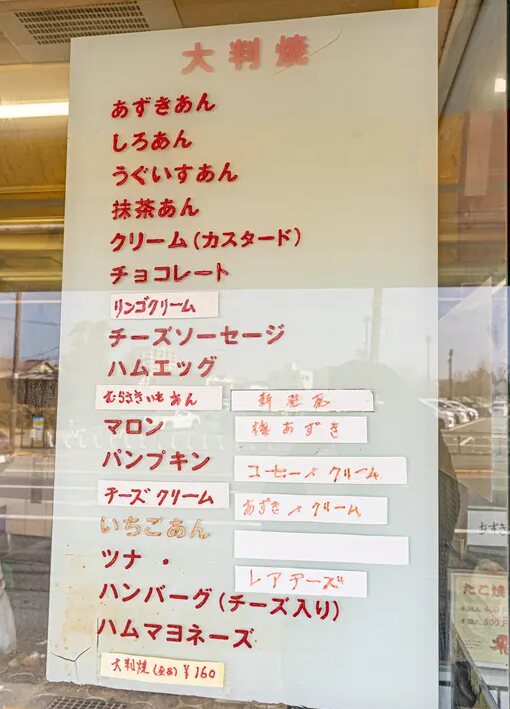 大判焼
あずきあん
しろあん
うぐいすあん
抹茶あん
クリーム(カスタード)
チョコレート
リンゴクリーム
チーズソーセージ
ハムエッグ
むらさきいもあん
マロン
あずき
パンプキン
コーヒー・クリーム
チーズクリーム
あずき・クリーム
いちごあん
ツナ・
レアチーズ
ハンバーグ(チーズ入り)
ハムマヨネーズ
大判焼(全品)¥160
たこ焼